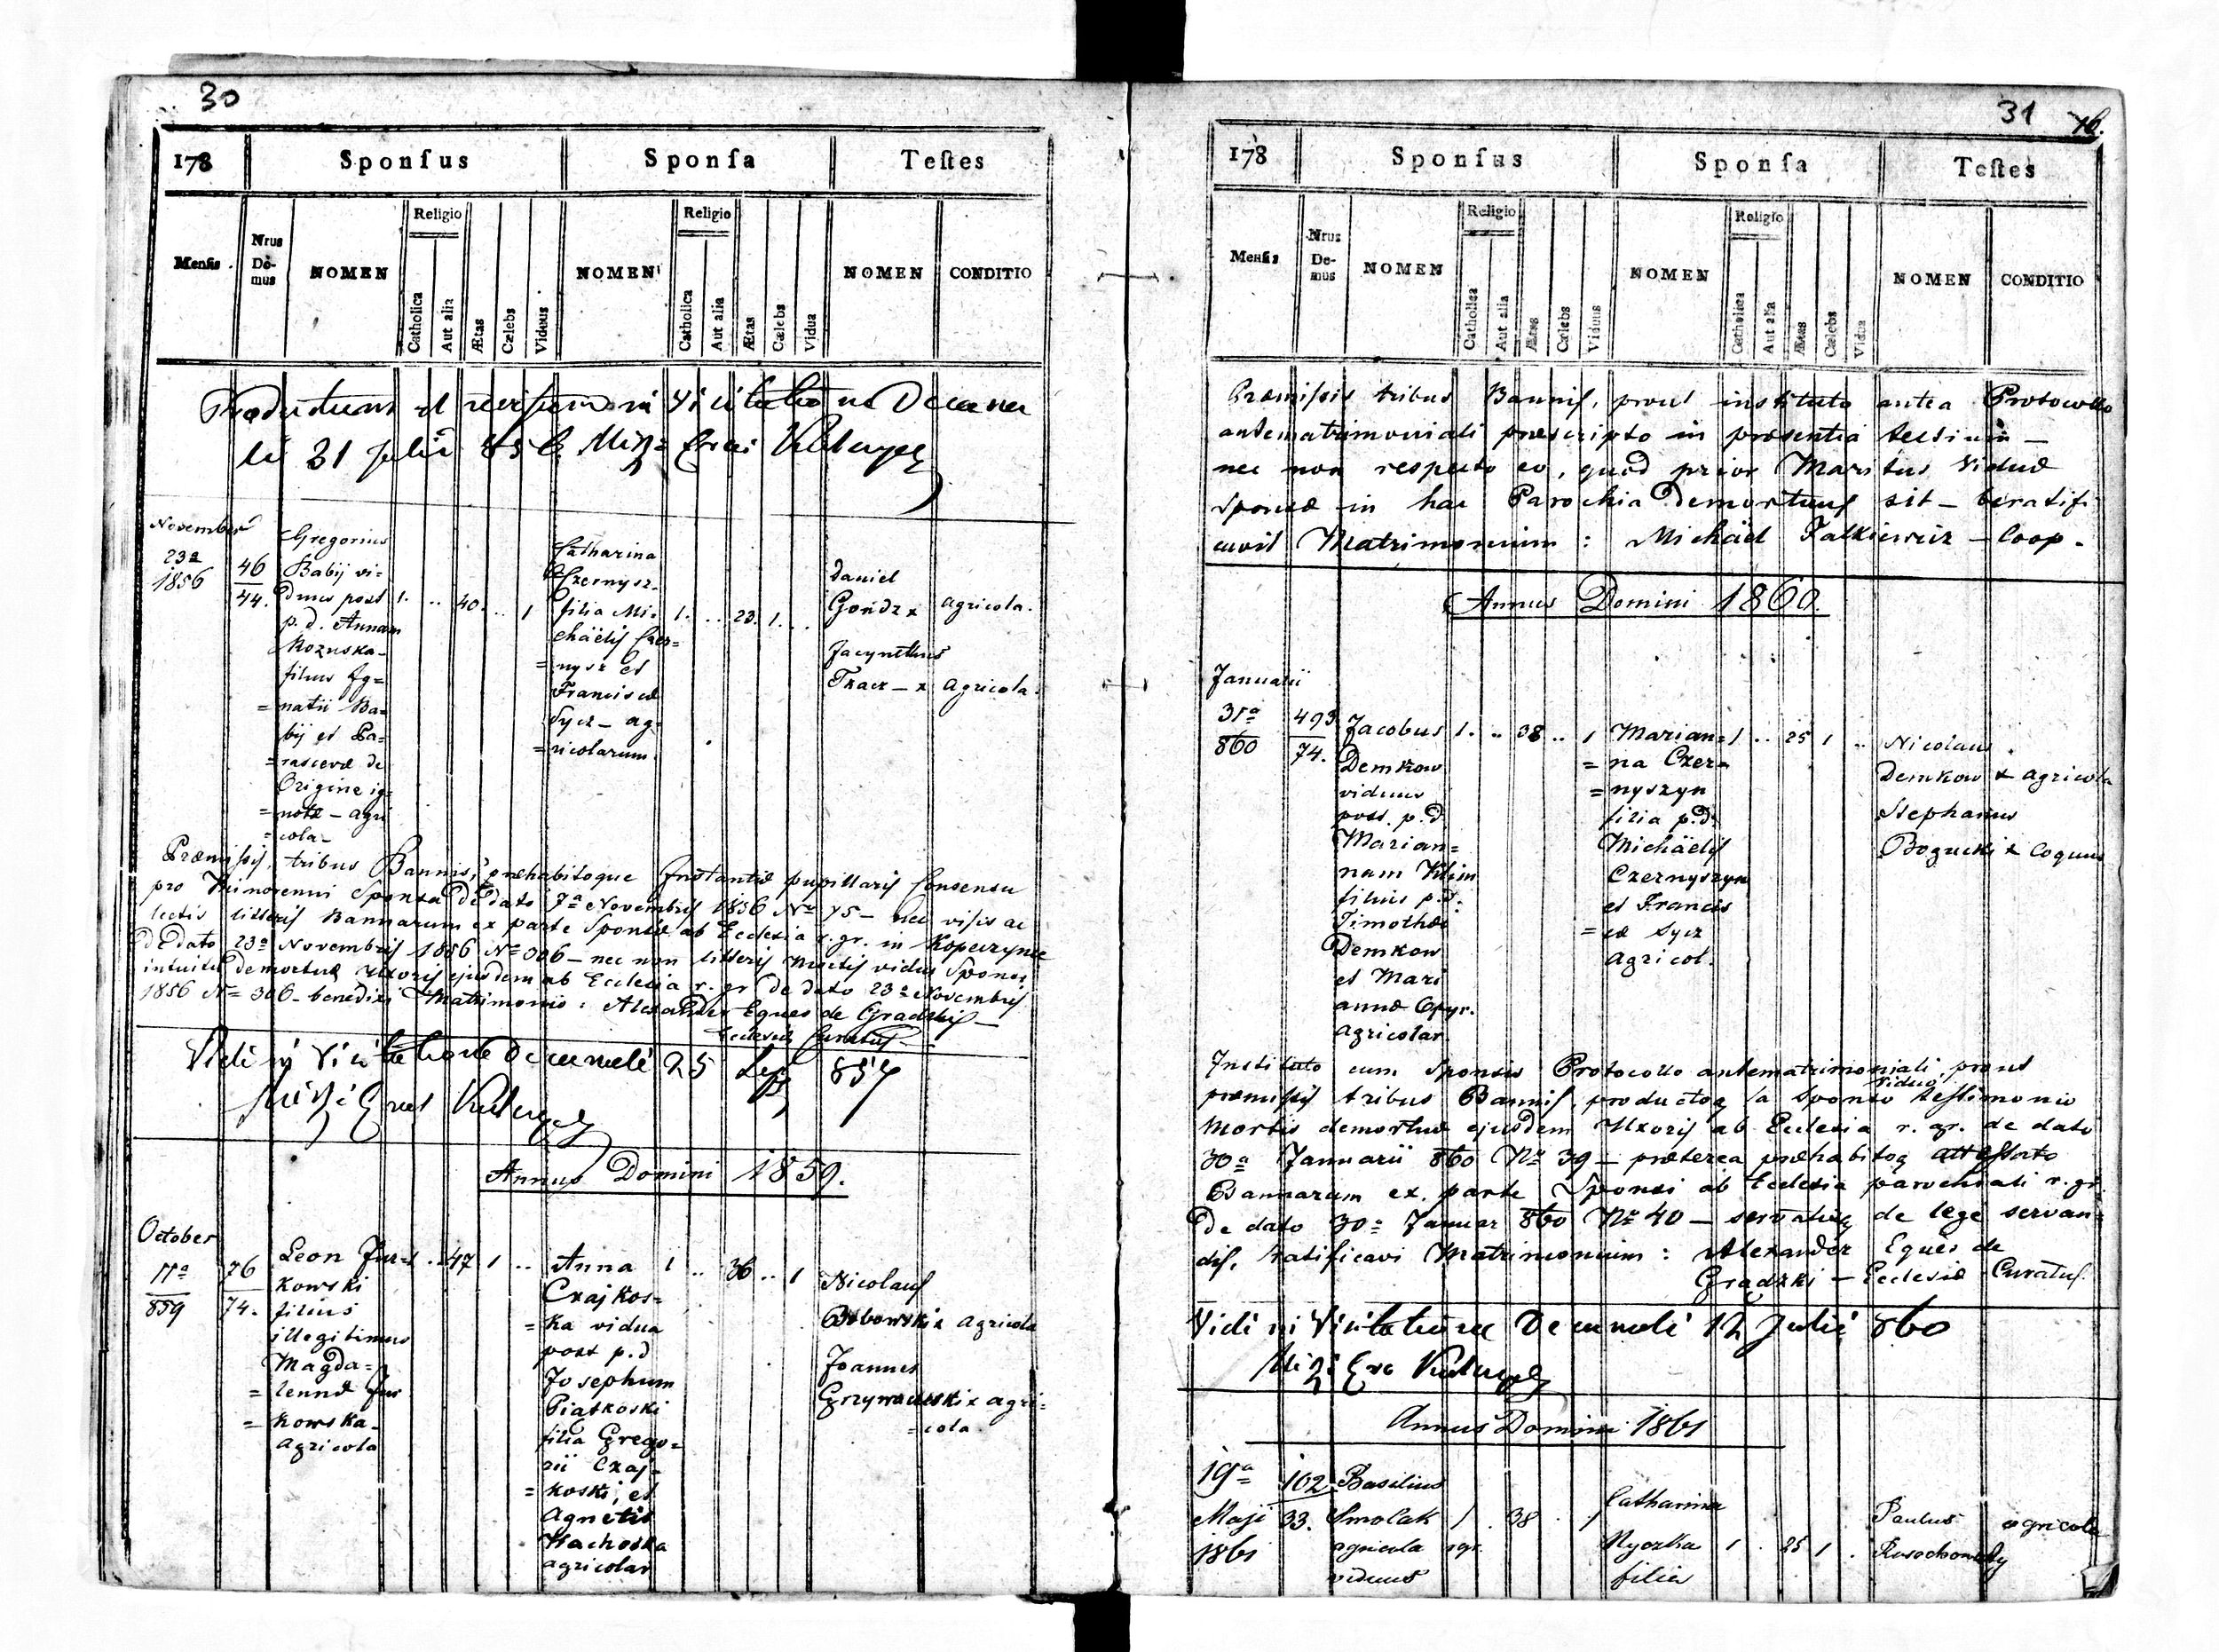 30
178
Sponſus
Sponſa
Teſtes
Menſis
Nrus Domus
NOMEN
Religio
Catholica
Aut alia
Ætas
Cælebs
Viduus
NOMEN
Religio
Catholica
Aut alia
Ætas
Cælebs
Vidua
NOMEN
CONDITIO
Productum et revisum in Visitatione Decana
li 31 Julii 856
November
23a
1856
46
44.
Gregorius
Babij vi=
duus post
p.d. Annam
Kozuska-
filius Ig=
=natii Ba=
bij et Pa=
=rascevæ de
Origine ig=
=notæ - agri
=cola-
1. .. 40. .. 1
Catharina
Czernysz-
filia Mi=
chäelis Czer=
=nysz et
Franciscæ
Sycz - ag=
=ricolarum.
1. .. 23. 1. ..
Daniel
Gondz x agricola.
Jacynthus
Tkacz - x agricola.
Præmissis tribus Bannis, præhabitoque Instantiæ pupillaris Consensu
pro Minorenni Sponsa de dato 7a Novembris 1856 No 75 - nec visis ac
lectis litteris Bannarum ex parte Sponsæ ab Ecclesia r. gr. in Kopeczynce
de dato 23a Novembris 1856 No 306 - nec non litteris mortis vidui Sponsi
intuitu demortuæ Uxoris ejusdem ab Ecclesia r. gr de dato 23a Novembris
1856 No 306 - benedixi Matrimonio: Alexander Eques de Gradzki -
Ecclesiæ Curatus
Vidi in Visitatione Decanali 25 857
Annus Domini 1859.
October
11a
859
76
74.
Leon Jur=
kowski
filius
illegitimus
Magda=
=lennæ Jur
=kowska-
agricola
1 .. 47 1 ..
Anna
Czajkos=
=ka vidua
post p.d
Josephum
Piatkoski
filia Grego=
rii Czaj=
=koski, et
Agnetis
Kachoska
agricolar
1 .. 36 .. 1
Nicolaus
Bobowski x agricola
Joannes
Grzymaliski x agri=
=cola.
31
16.
178
Sponſus
Sponſa
Teſtes
Menſis
Nrus Domus
NOMEN
Religio
Catholica
Aut alia
Ætas
Cælebs
Viduus
NOMEN
Religio
Catholica
Aut alia
Ætas
Cælebs
Vidua
NOMEN
CONDITIO
Præmissis tribus Bannis, prout instituto antea Protocollo
antematrimoniali præscripto in præsentia testium -
nec non respecto eo, quod prior Maritus Viduæ
Sponsæ in hac Parochia demortuus sit - beratifi
cavit Matrimonium: Michäel Falkiewicz - Coop.
Annus Domini 1860.
Januarii
31a
860
493
74.
Jacobus
Demkow
viduus
post. p.d
Marian=
nam Klim
filius p.d.
Timothæi
Demkow
et Mari
annæ Cpyr.
agricolar
1. .. 38 .. 1
Marian=
=na Czer=
=nyszyn
filia p.d.
Michäelis
Czernyszyn
et Francis
=cæ Sycz
agricol.
1 .. 25 1 ..
Nicolaus
Demkow x agricola
Stephanus
Bogucki x coquus
Instituto cum Sponsis Protocollo antematrimoniali, prout
præmissis tribus Bannis, productoq a Sponso viduo testimonio
mortis demortuæ ejusdem Uxoris ab Ecclesia r. gr. de dato
30a Januarii 860 No 39 - præterea præhabitoq attestato
Bannarum ex. parte Sponsi ab Ecclesia parochiali r. gr
de dato 30a Januar 860 No 40 - servatisq de lege servan=
dis, ratificavi Matrimonium: Alexander Eques de
Gradzki - Ecclesiæ Curatus.
Vidi in Visitatione Decanali 12 Julii 860
Annus Domini 1861
19a
Maji
1861
102
33.
Basilius
Smolak
agricola
viduus
1 . 38 . 1
rgr.
Catharina
Ryczka
filia
1 . 25 1 .
Paulus agricola